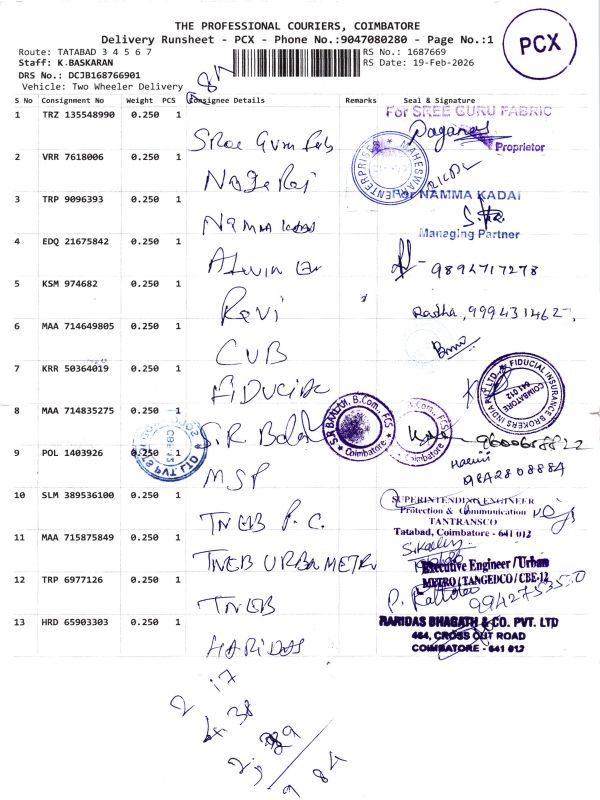 THE PROFESSIONAL COURIERS, COIMBATORE
Delivery Runsheet - PCX - Phone No.:9047080280 - Page No.:1
PCX
Route: TATABAD 3 4 5 6 7
RS No.: 1687669
Staff: K.BASKARAN
RS Date: 19-Feb-2026
DRS No.: DCJB168766901
Vehicle: Two Wheeler Delivery
S No Consignment No Weight PCS Consignee Details Remarks Seal & Signature
1 TRZ 135548990 0.250 1 Sree Guru Fab
For SREE GURU FABRIC
Proprietor
2 VRR 7618006 0.250 1
MAHESWA ENTERPRIS
3 TRP 9096393 0.250 1 Namma kadai
For NAMMA KADAI
Managing Partner
4 EDQ 21675842 0.250 1 Alwin
9894717278
5 KSM 974682 0.250 1 Revi
Radha, 9994314627,
6 MAA 714649805 0.250 1 CUB
7 KRR 50364019 0.250 1 FIDUCIA
FIDUCIAL INSURANCE BROKERS INDIA PVT LTD
COIMBATORE 641 012
8 MAA 714835275 0.250 1 S.R Balah
S.R BALAH, B.Com, FCS
Coimbatore
9600658822
9 POL 1403926 0.250 1 MSP
9842808884
10 SLM 389536100 0.250 1 TNEB P.C.
SUPERINTENDING ENGINEER
Protection & Communication
TANTRANSCO
Tatabad, Coimbatore - 641 012
11 MAA 715875849 0.250 1 TNEB URBAN METRO
Executive Engineer / Urban
METRO / TANGEDCO / CBE-12
12 TRP 6977126 0.250 1 TNEB
13 HRD 65903303 0.250 1 HARIDAS
HARIDAS BHAGATH & CO. PVT. LTD
464, CROSS CUT ROAD
COIMBATORE - 641 012
2 17
38
29
9 84